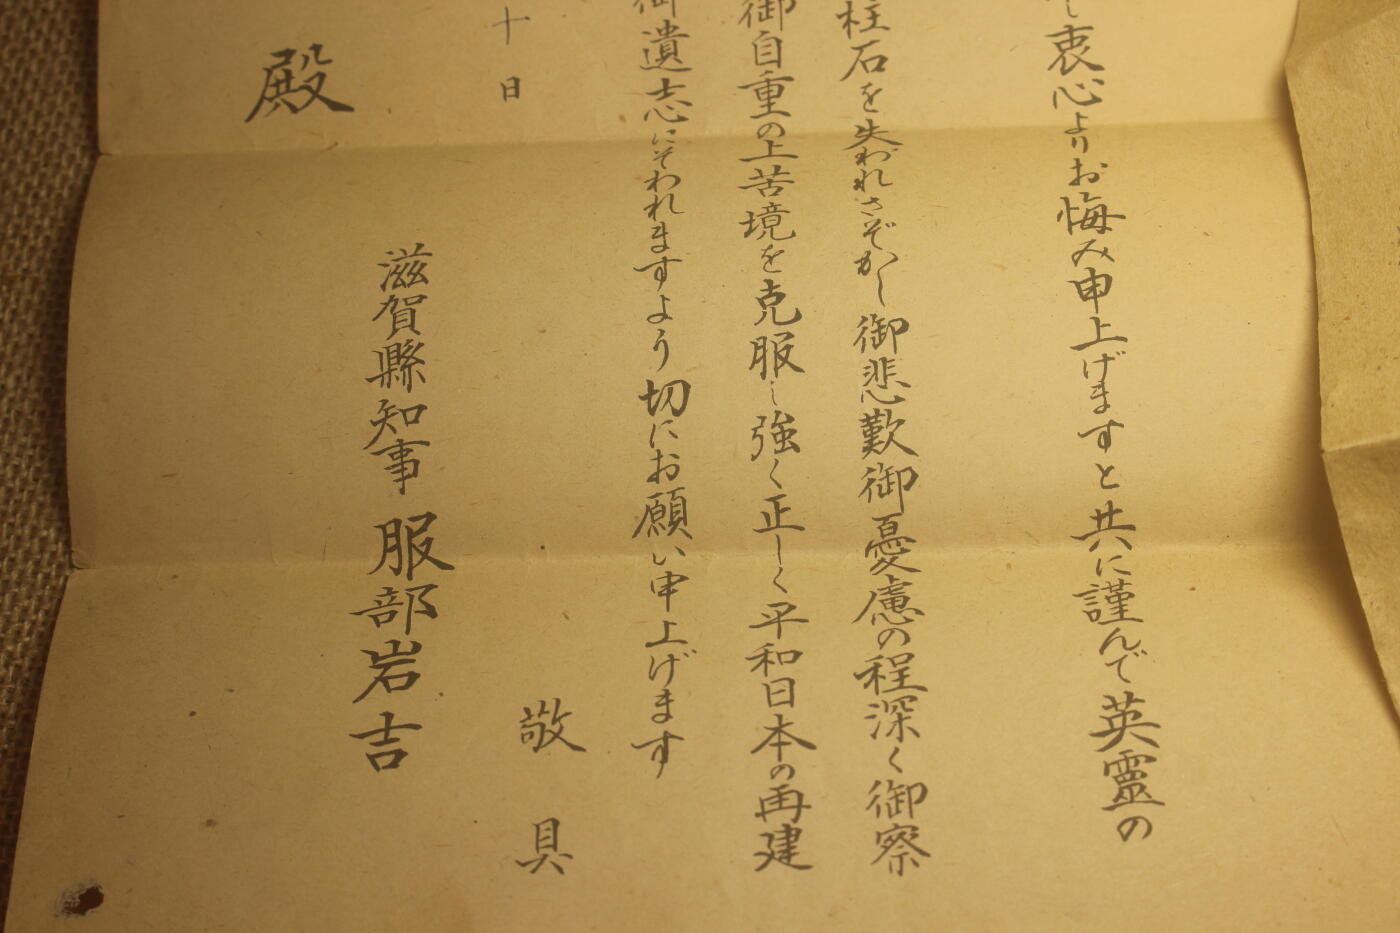 衷心よりお悔み申上げますと共に謹んで英靈の
柱石を失われさぞかし御悲歎御憂慮の程深く御察
御自重の上苦境を克服し強く正しく平和日本の再建
御遺志にそわれますよう切にお願い申上げます
敬具
十日
滋賀縣知事 服部岩吉
殿